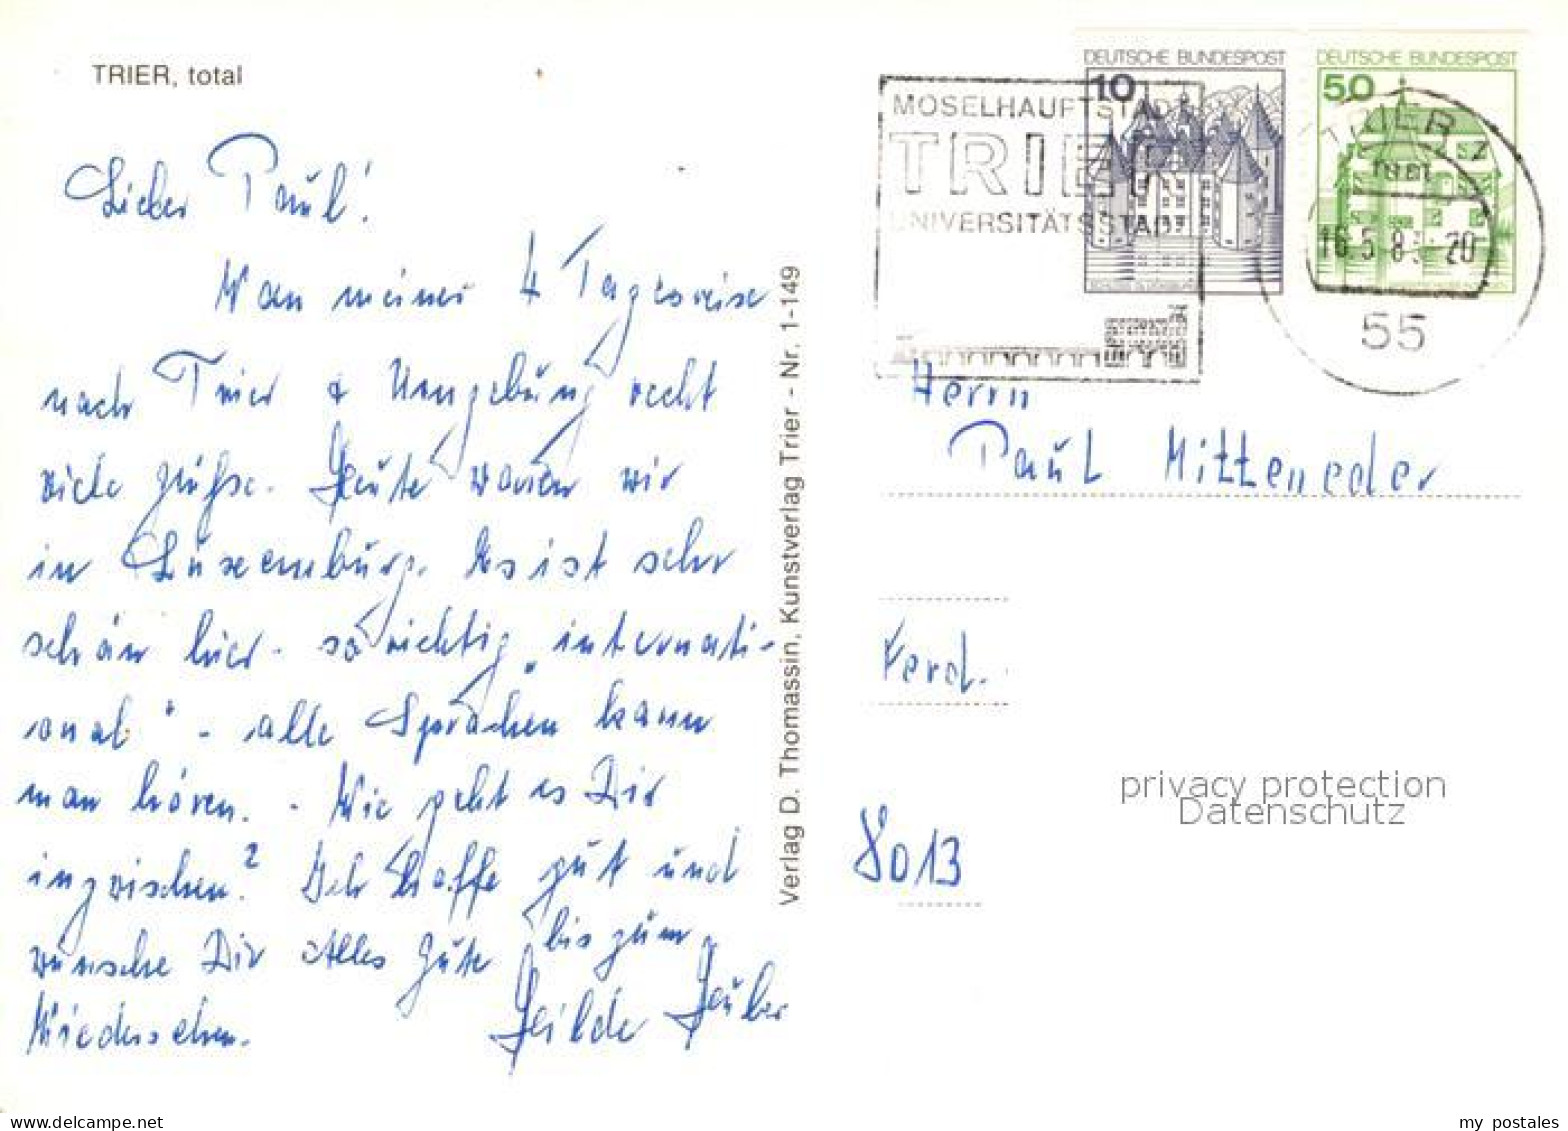 TRIER, total
Lieber Paul!
Von meiner 4 Tagesreise
nach Trier & Umgebung recht
viele Grüße. Heute waren wir
in Luxemburg. Es ist sehr
schön hier - so richtig "internati-
onal" - alle Sprachen kann
man hören. - Wie geht es Dir
inzwischen? Ich hoffe gut und
wünsche Dir Alles Gute bis zum
Wiedersehen.
Verlag D. Thomassin, Kunstverlag Trier - Nr. 1-149
DEUTSCHE BUNDESPOST
10
DEUTSCHE BUNDESPOST
50
MOSELHAUPTSTADT
TRIER
UNIVERSITÄTSSTADT
TRIER
16.5.8 20
55
Herrn
Paul Mitteneder
8013
privacy protection
Datenschutz
www.delcampe.net
my_postales